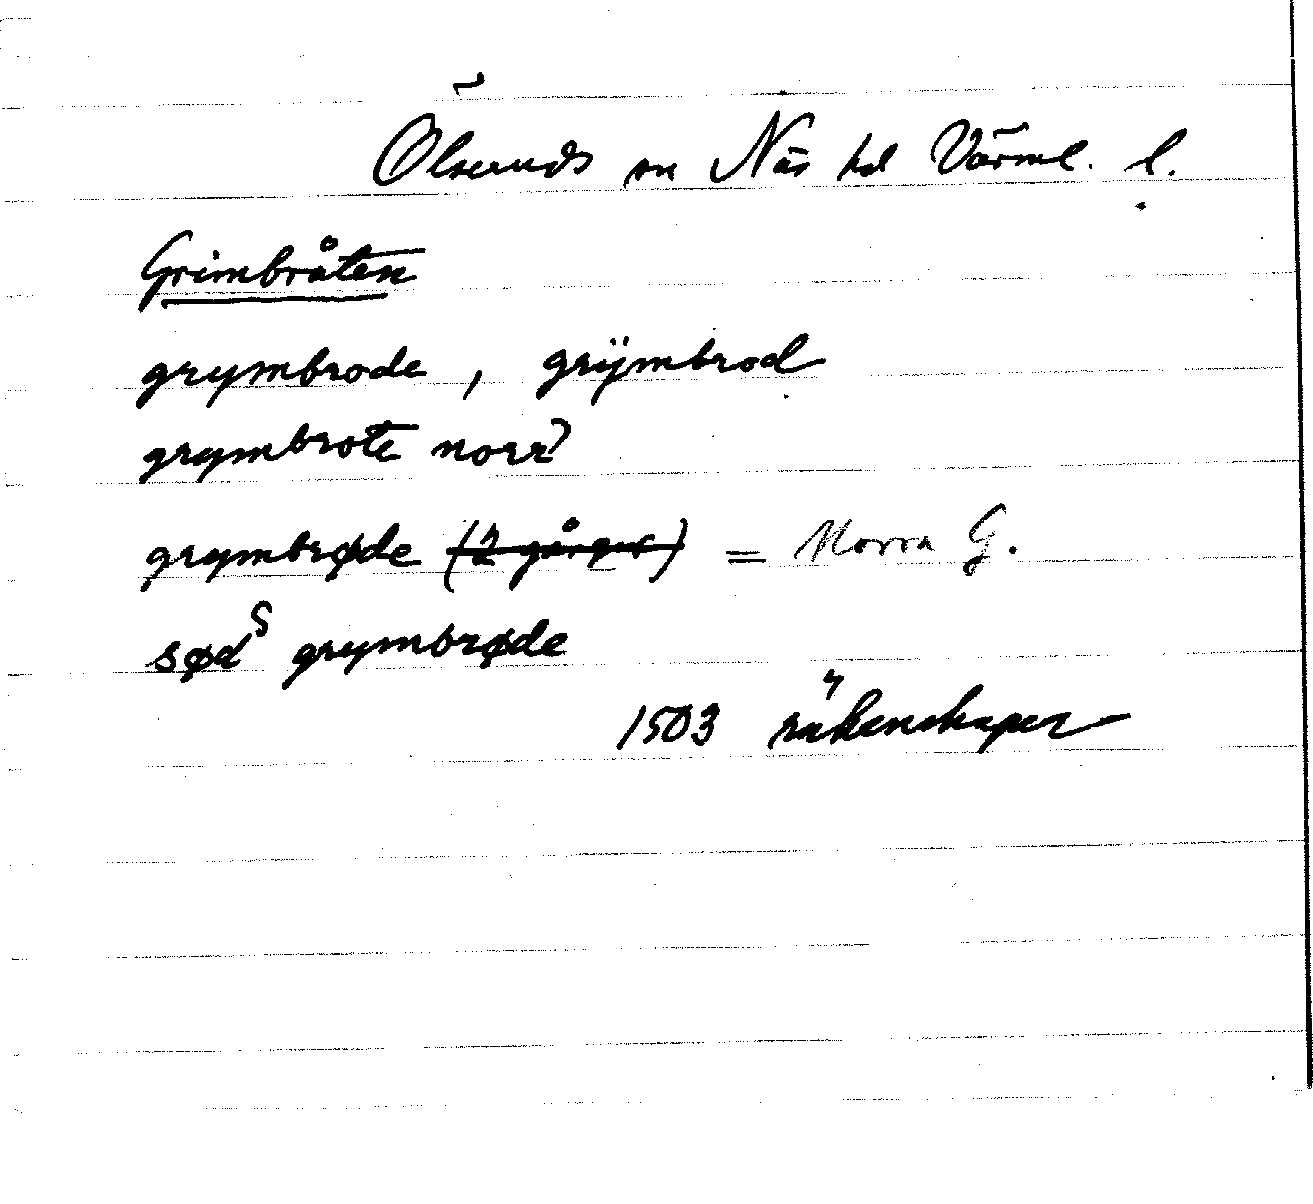 Ölseruds sn Näs hd Värml. l.
Grimbråten
grymbrode, grÿmbrod
grymbrote norr
grymbrøde (2 gånger) = Norra G.
sød grymbrøde
1503 räkenskaper